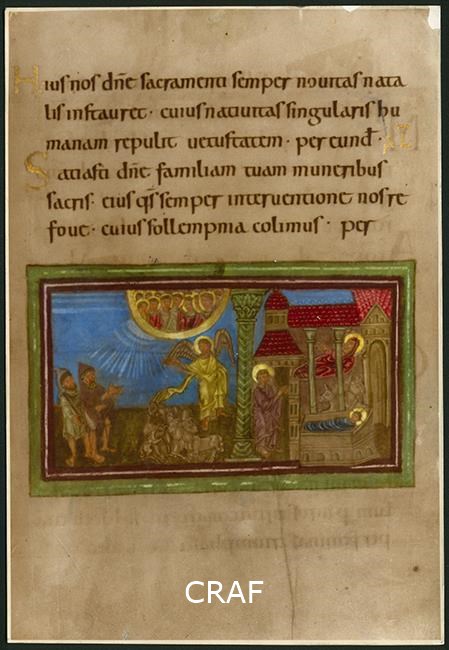 Hius nos dñe sacramenti semper nouitas nata
lis instauret · cuius natiuitas singularis hu
manam repulit uetustatem · per eund̄ ·
Satiasti dñe familiam tuam muneribus
sacris · eius q̄s semper interuentione nos re
foue · cuius sollempnia colimus · per
CRAF